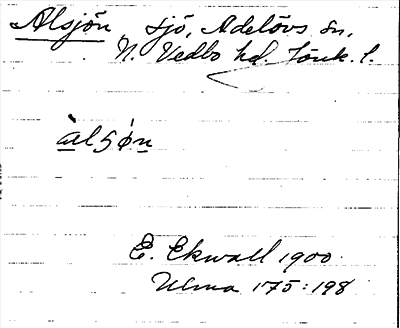 Alsjön, sjö, Adelövs sn,
N. Vedbo hd. Jönk. l.
àlsøn
E. Ekwall 1900.
Ulma 175:198